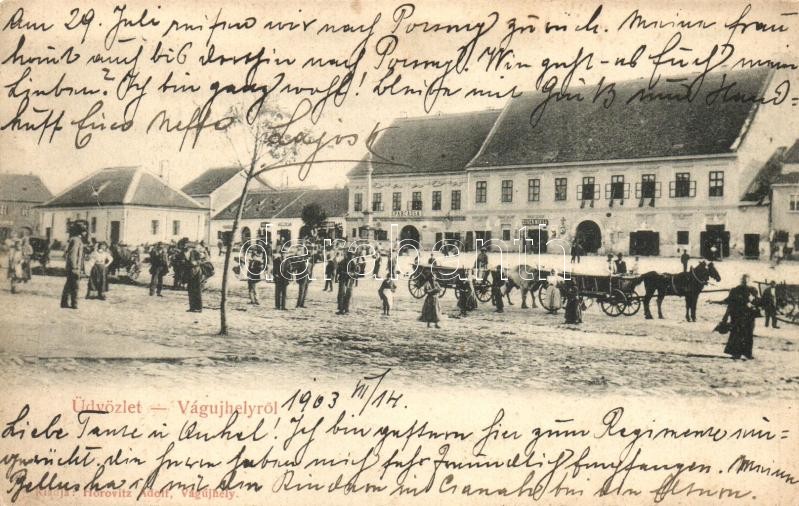 Am 29. Juli reisen wir nach Pozsony zurück. Meine Frau
kommt auch bis dorthin nach Pozsony. Wie geht es Euch mein
Lieben? Ich bin ganz wohl! Bleibe mit Gruß und Hand-
kuß Euer Neffe Lajos
SPARCASSA
darabanth.com
Üdvözlet — Vágujhelyről 1903 VII/14.
Liebe Tante u Onkel! Ich bin gestern hier zum Regimente ein-
gerückt, die Herren haben mich sehr freundlich empfangen. Meine
ist mit den Kindern in bei den Eltern.
Kiadja: Horovitz Adolf, Vágujhely.